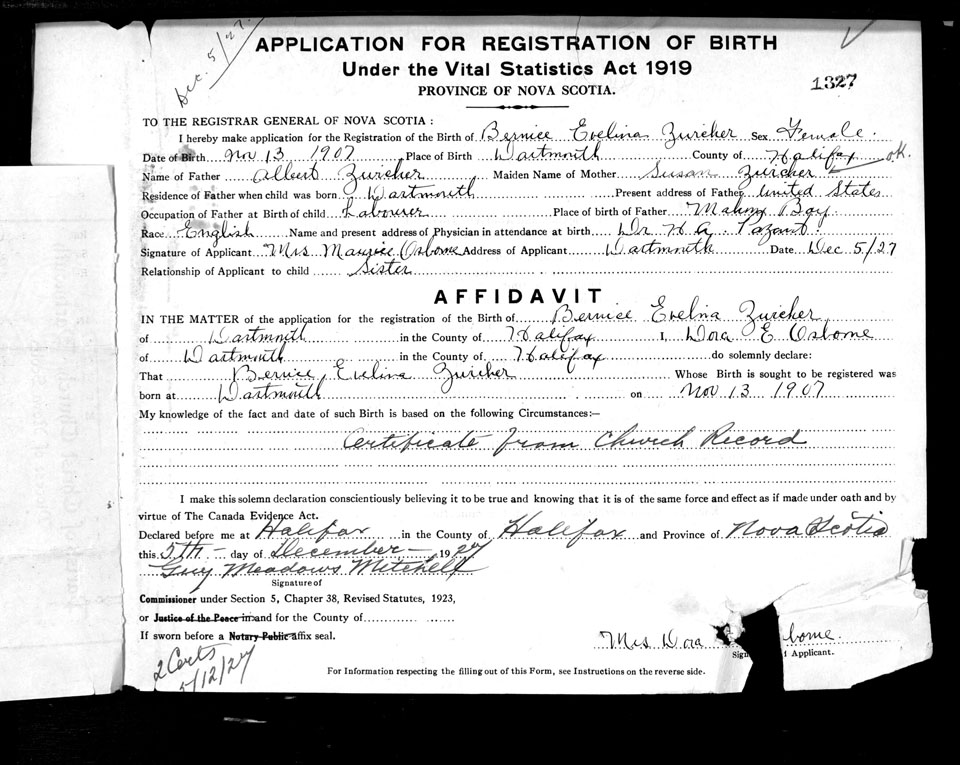 Dec. 5/27.
APPLICATION FOR REGISTRATION OF BIRTH
Under the Vital Statistics Act 1919
PROVINCE OF NOVA SCOTIA.
1327
TO THE REGISTRAR GENERAL OF NOVA SCOTIA :
I hereby make application for the Registration of the Birth of Bernice Evelina Zurcher Sex Female.
Date of Birth Nov 13 1907 Place of Birth Dartmouth County of Halifax ok.
Name of Father Albert Zurcher Maiden Name of Mother Susan Zurcher
Residence of Father when child was born Dartmouth Present address of Father United States
Occupation of Father at Birth of child Labourer Place of birth of Father Mahone Bay
Race English Name and present address of Physician in attendance at birth Dr H A. Payzant.
Signature of Applicant Mrs Maurice Osborne Address of Applicant Dartmouth Date Dec 5/27
Relationship of Applicant to child Sister
AFFIDAVIT
IN THE MATTER of the application for the registration of the Birth of Bernice Evelina Zurcher
of Dartmouth in the County of Halifax I, Dora E Osborne
of Dartmouth in the County of Halifax do solemnly declare:
That Bernice Evelina Zurcher Whose Birth is sought to be registered was
born at Dartmouth on Nov 13 1907
My knowledge of the fact and date of such Birth is based on the following Circumstances:—
Certificate from Church Record
I make this solemn declaration conscientiously believing it to be true and knowing that it is of the same force and effect as if made under oath and by
virtue of The Canada Evidence Act.
Declared before me at Halifax in the County of Halifax and Province of Nova Scotia
this 5th day of December 1927
Guy Meadows Mitchell
Signature of
Commissioner under Section 5, Chapter 38, Revised Statutes, 1923,
or Justice of the Peace in and for the County of
If sworn before a Notary Public affix seal.
Mrs Dora borne.
Sign d Applicant.
2 Certs
5/12/27
For Information respecting the filling out of this Form, see Instructions on the reverse side.